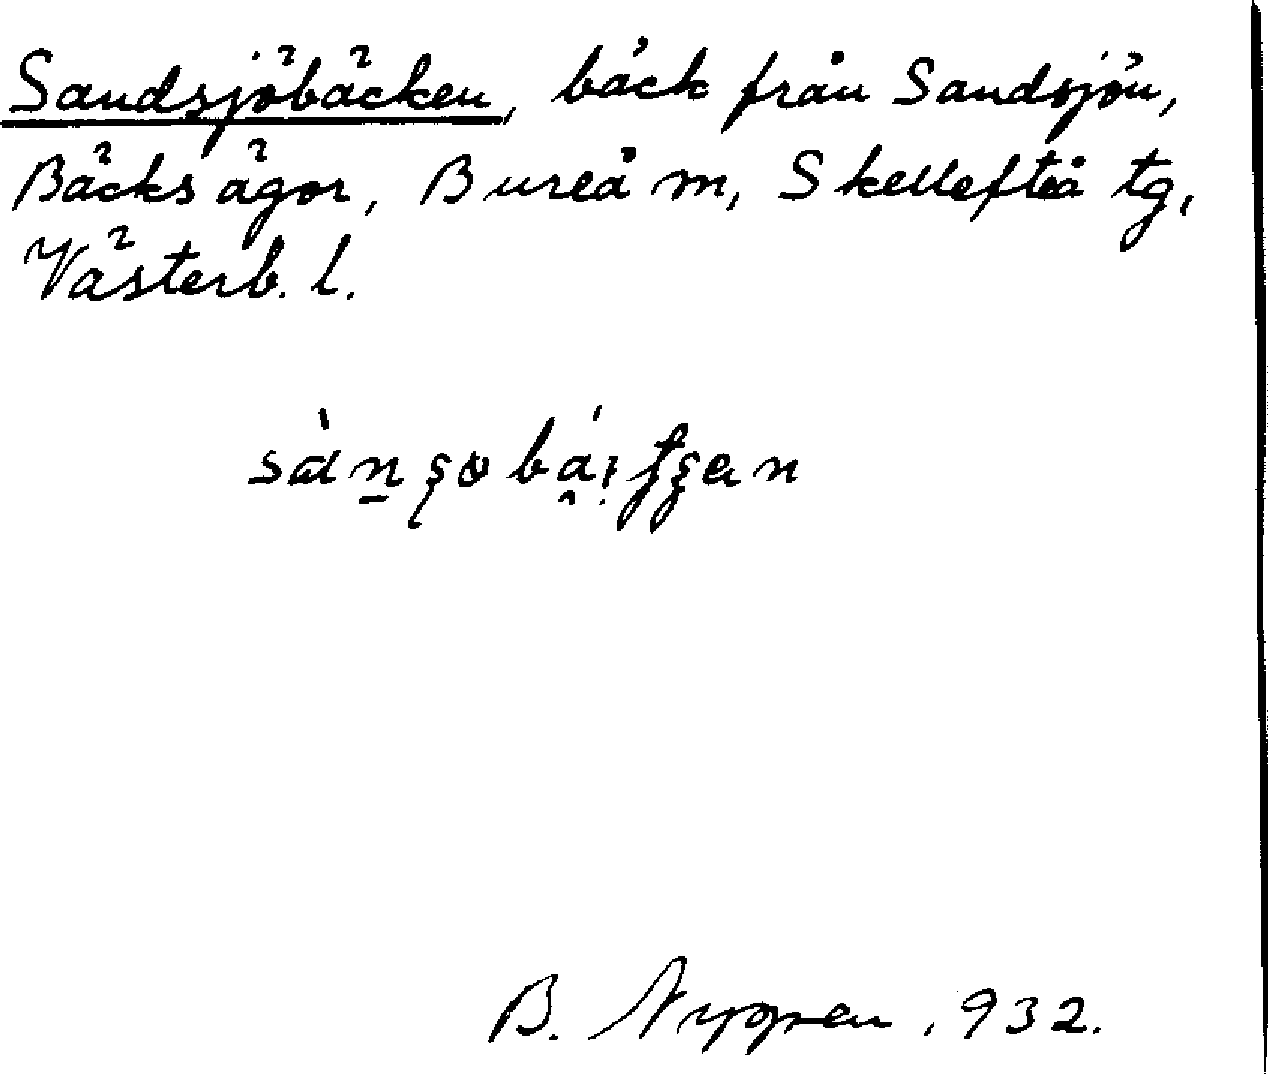 Sandsjöbäcken, bäck från Sandsjön,
Bäcks ägor, Bureå m, Skellefteå tg,
Västerb. l.
B. Nygren. 932.